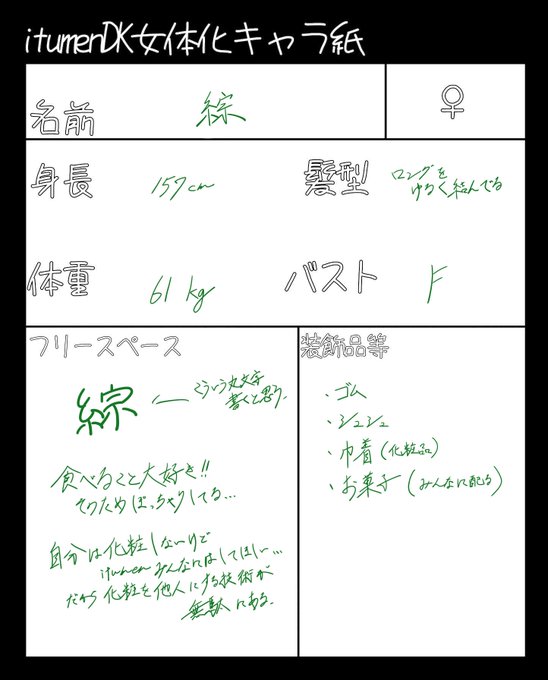 itumenDK女体化キャラ紙
名前 綜 ♀
身長 157cm
髪型 ロングを
ゆるく結んでる
体重 61kg
バスト F
フリースペース
綜 ← こういう丸文字
書くと思う。
食べること大好き!!
そのためぽっちゃりしてる…
自分は化粧しないけど
itumenみんなにはしてほしい…
だから化粧を他人にする技術が
無駄にある。
装飾品等
・ゴム
・シュシュ
・巾着(化粧品)
・お菓子(みんなに配る)